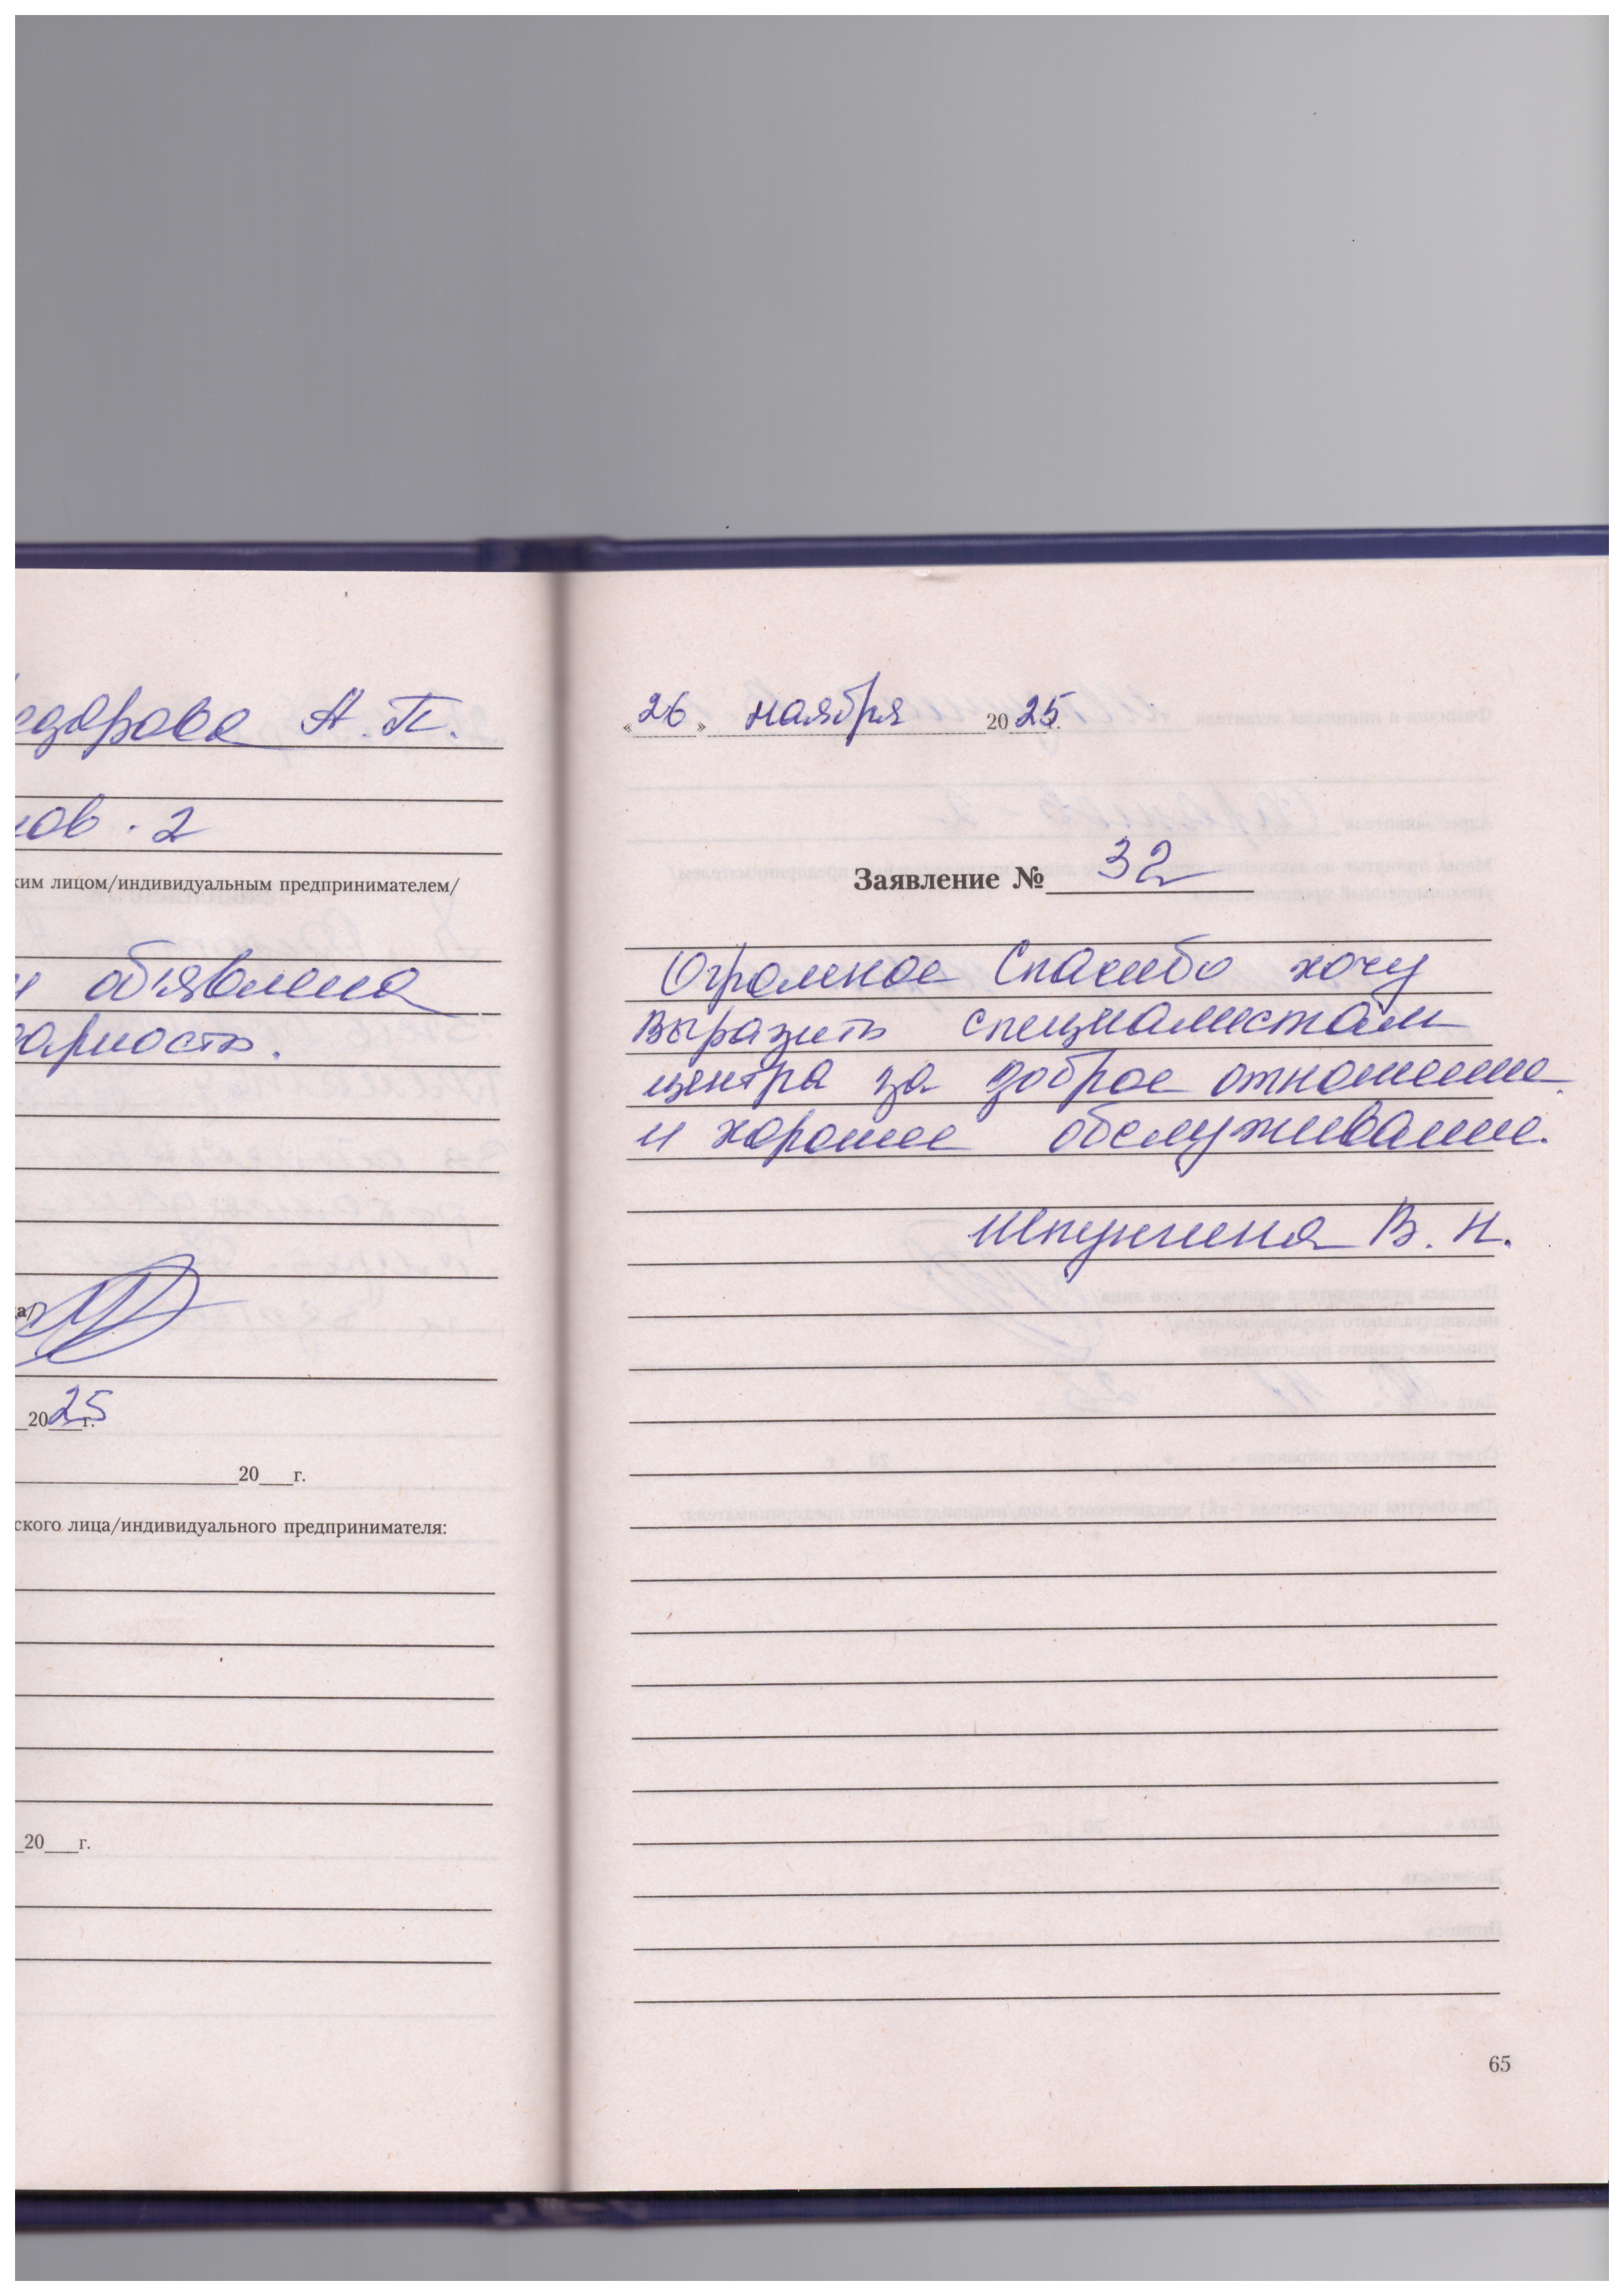 А. П.
2
ким лицом/индивидуальным предпринимателем/
объявлена
дарность.
а/
20 25 г.
20 г.
ского лица/индивидуального предпринимателя:
20 г.
« 26 » ноября 20 25 г.
Заявление № 32
Огромное Спасибо хочу
выразить специалистам
центра за доброе отношение
и хорошее обслуживание.
В. Н.
65